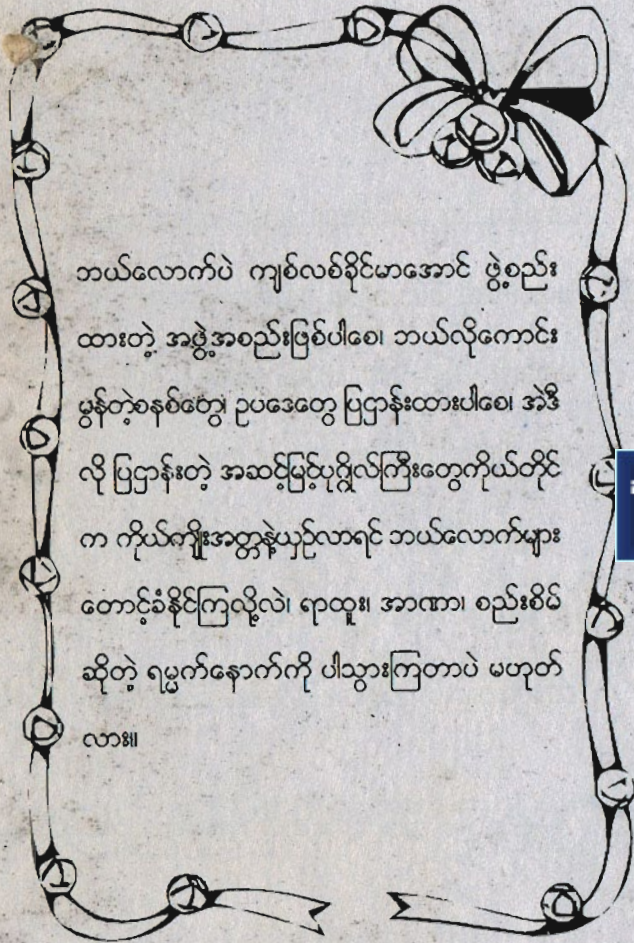 ဘယ်လောက်ပဲ ကျစ်လစ်ခိုင်မာအောင် ဖွဲ့စည်း
ထားတဲ့ အဖွဲ့အစည်းဖြစ်ပါစေ၊ ဘယ်လိုကောင်း
မွန်တဲ့စနစ်တွေ၊ ဥပဒေတွေ ပြဌာန်းထားပါစေ၊ အဲဒီ
လို ပြဌာန်းတဲ့ အဆင့်မြင့်ပုဂ္ဂိုလ်ကြီးတွေကိုယ်တိုင်
က ကိုယ်ကျိုးအတ္တနဲ့ယှဉ်လာရင် ဘယ်လောက်များ
တောင့်ခံနိုင်ကြလို့လဲ၊ ရာထူး၊ အာဏာ၊ စည်းစိမ်
ဆိုတဲ့ ရမ္မက်နောက်ကို ပါသွားကြတာပဲ မဟုတ်
လား။